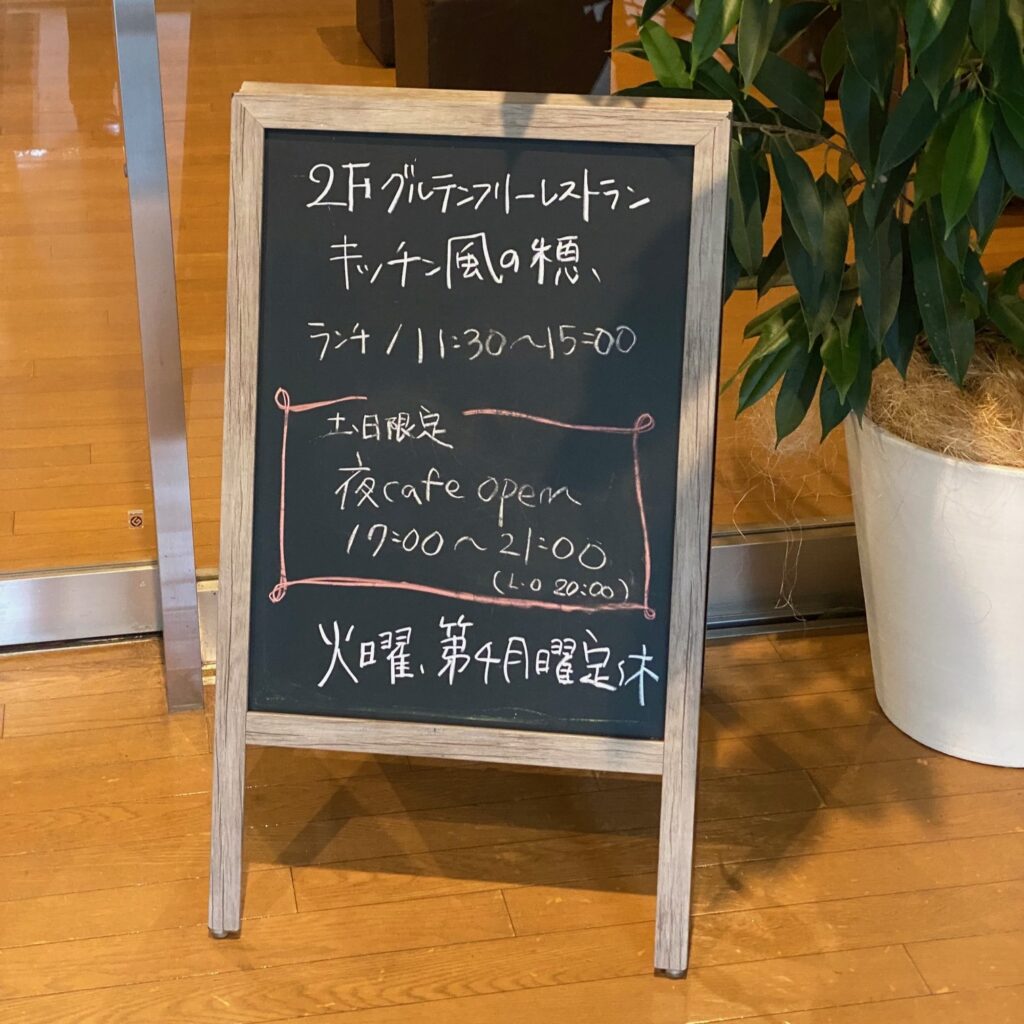 2F グルテンフリーレストラン
キッチン風の穂、
ランチ / 11:30〜15:00
土、日限定
夜cafe open
17:00〜21:00
(L.O 20:00)
火曜、第4月曜定休